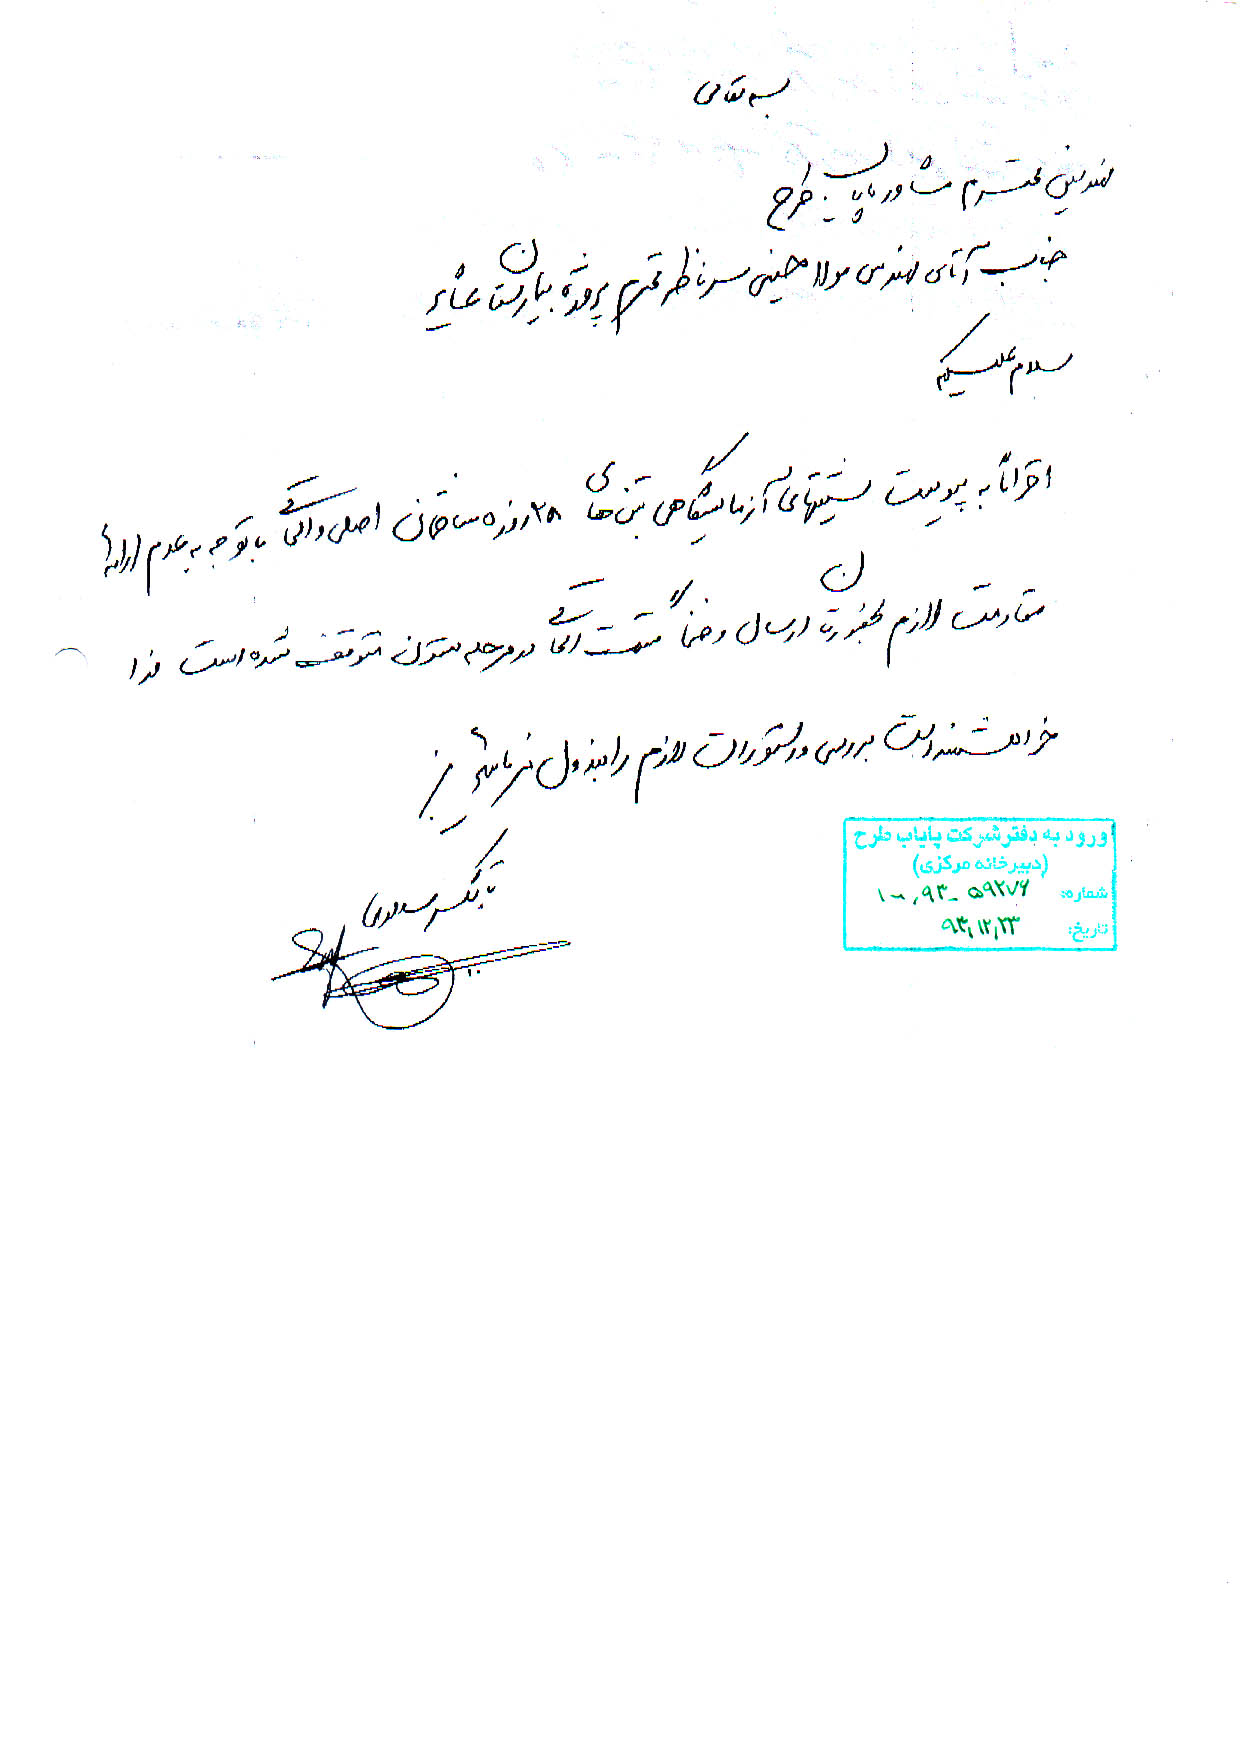 بسمه تعالی
مهندسین محترم مشاور پایاب طرح
جناب آقای مهندس مولا حسینی سرناظر محترم پروژه بیمارستان عشایر
سلام علیکم
احتراماً به پیوست آزمایشگاهی بتن های ۲۸ روزه ساختمان اصلی و الحاقی با توجه به عدم ارائه
مقاومت لازم بحضورتان ارسال و ضمناً قسمت الحاقی در مرحله ستون متوقف شده است لذا
خواهشمند است بررسی و دستورات لازم را مبذول فرمائید
با تشکر
ورود به دفتر شرکت پایاب طرح
(دبیرخانه مرکزی)
شماره: ۵۹۲۷۶ - ۹۳
تاریخ: ۹۳,۱۲,۲۳